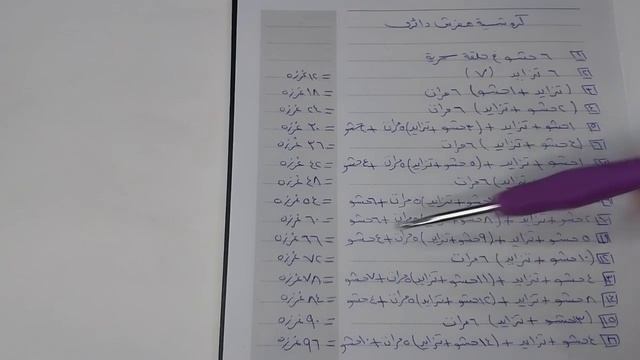 كروشيه مفرش دائري
١ ٦ حشو ع حلقة سحرية
٢ ٦ تزايد (٧) = ١٢ غرزه
٣ (تزايد + ١ حشو) ٦ مرات = ١٨ غرزه
٤ (٢ حشو + تزايد) ٦ مرات = ٢٤ غرزه
٥ ١ حشو + تزايد + (٣ حشو + تزايد) ٥ مرات + ٢ حشو = ٣٠ غرزه
٦ (٤ حشو + تزايد) ٦ مرات = ٣٦ غرزه
١ حشو + تزايد + (٥ حشو + تزايد) ٥ مرات + ٤ حشو = ٤٢ غرزه
تزايد) ٦ مرات = ٤٨ غرزه
حشو + تزايد) ٥ مرات + ٦ حشو = ٥٤ غرزه
حشو + تزايد + (٨ حشو + مرات + ٦ حشو = ٦٠ غرزه
١١ ٥ حشو + تزايد + (٩ حشو + تزايد) ٥ مرات + ٤ حشو = ٦٦ غرزه
١٢ (١٠ حشو + تزايد) ٦ مرات = ٧٢ غرزه
١٣ ٤ حشو + تزايد + (١١ حشو + تزايد) ٥ مرات + ٧ حشو = ٧٨ غرزه
١٤ ٨ حشو + تزايد + (١٢ حشو + تزايد) ٥ مرات + ٤ حشو = ٨٤ غرزه
١٥ (١٣ حشو + تزايد) ٦ مرات = ٩٠ غرزه
١٦ ٤ حشو + تزايد + (١٤ حشو + تزايد) ٥ مرات + ١٠ حشو = ٩٦ غرزه